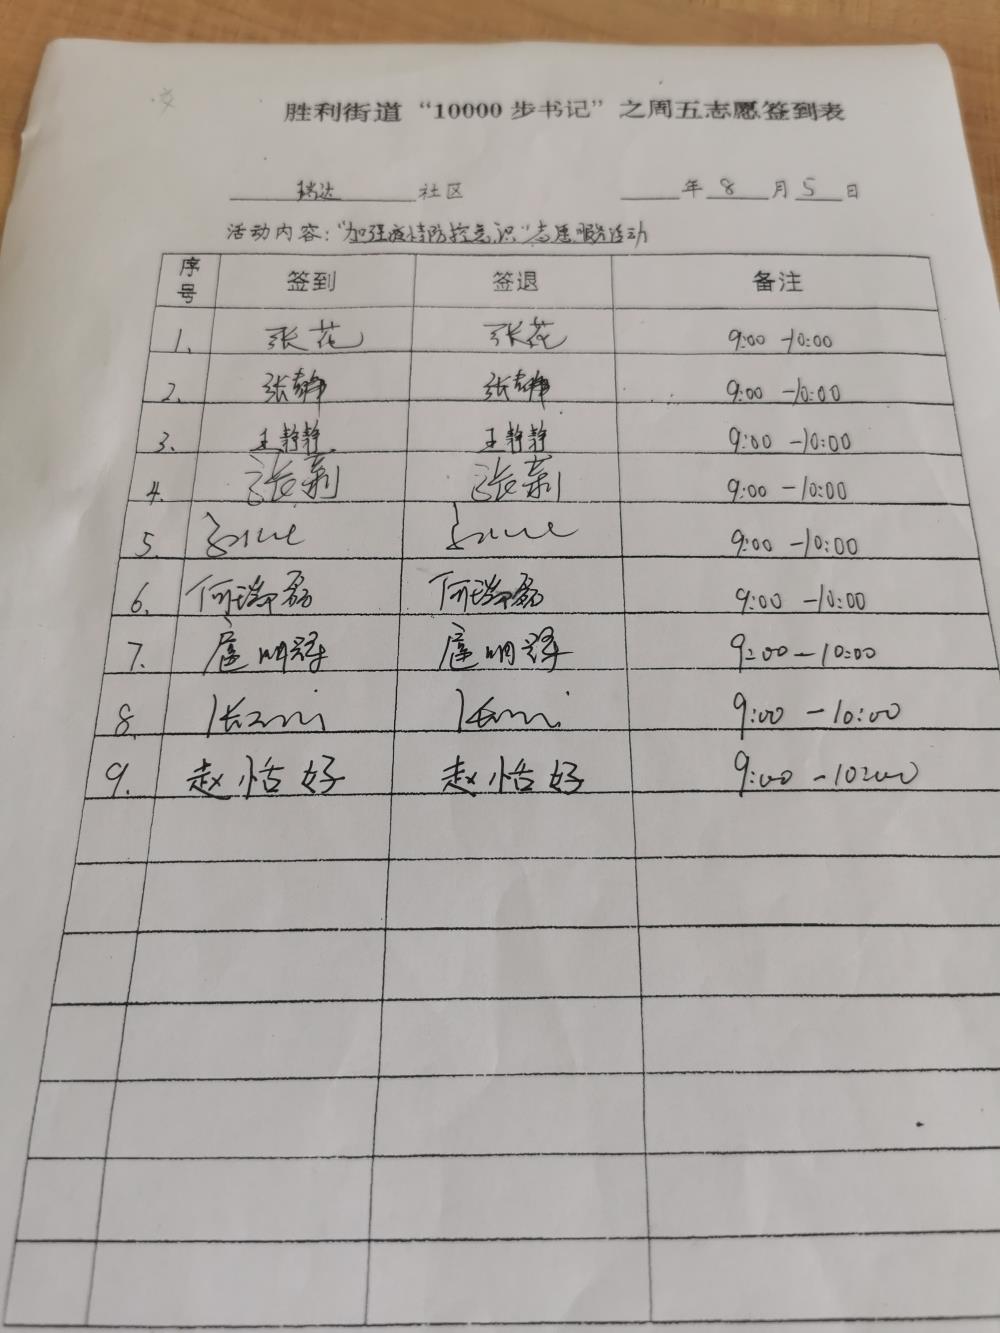 胜利街道“10000步书记”之周五志愿签到表
瑞达 社区 年 8 月 5 日
活动内容：“加强疫情防控意识”志愿服务活动
序号 签到 签退 备注
1. 张花 张花 9:00-10:00
2. 张静 张静 9:00-10:00
3. 王静静 王静静 9:00-10:00
4. 张莉 张莉 9:00-10:00
5. 9:00-10:00
6. 何瑞磊 何瑞磊 9:00-10:00
7. 明 明 9:00-10:00
8. 张 张 9:00-10:00
9. 赵恬好 赵恬好 9:00-10:00